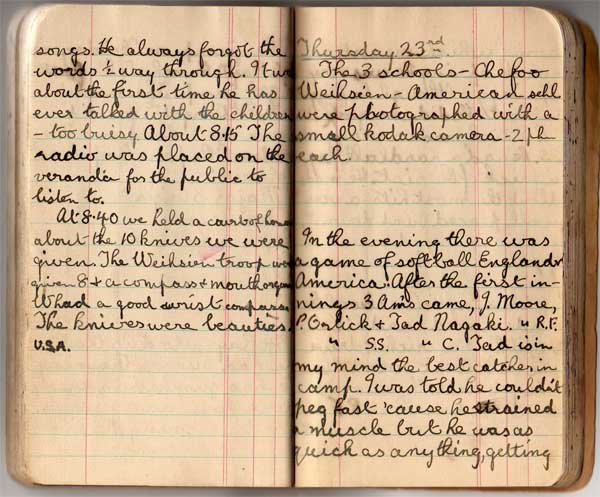 songs. He always forgot the
words ½ way through. It w
about the first time he has
ever talked with the children
- too buisy About 8.15 The
radio was placed on the
veranda for the public to
listen to.
At 8.40 we held a court of honour
about the 10 knives we were
given. The Weihsien troop were
given 8 & a compass & mouthorgan
W had a good wrist compass.
The knives were beauties.
U.S.A.
Thursday 23rd
The 3 schools - Chefoo
Weihsien - American schl
were photographed with a
small kodak camera - 2 ph
each.
In the evening there was
a game of softball England v
America. After the first in-
nings 3 Ams came, J. Moore,
P. Orlick & Tad Nagaki. " R.F.
" S.S. " C. Tad is in
my mind the best catcher in
camp. I was told he couldn't
peg fast 'cause he strained
a muscle but he was as
quick as anything, getting